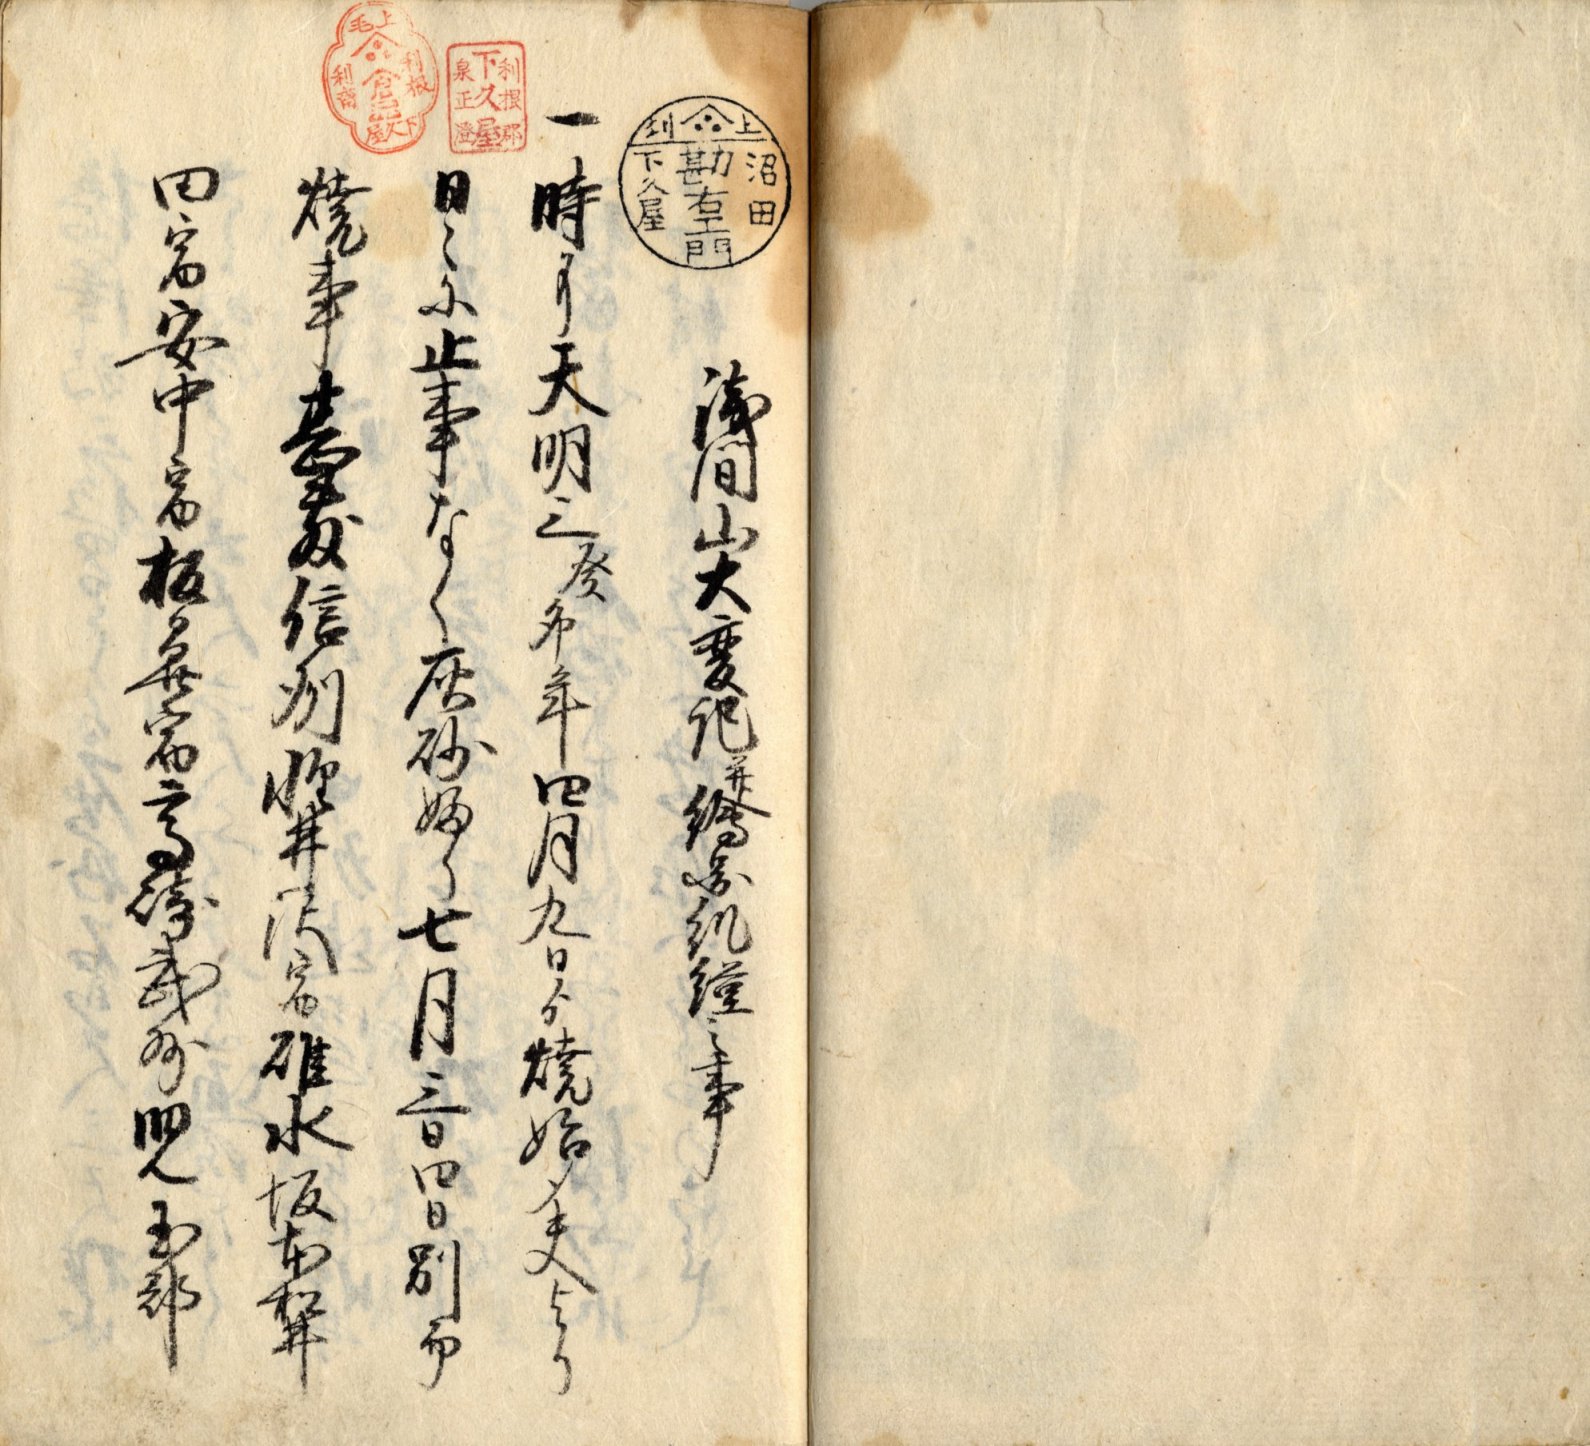 上刕
沼田
勘右エ門
下久屋
利根郡
下久屋
泉正澄
上毛
利根
下久屋
浅間山大変記并繪図乱經之事
一時ニ天明三癸卯年四月九日ゟ焼始夫より
日々ニ止事なく灰砂婦り七月三日四日別而
焼事甚敷信州軽井沢宿碓氷坂本松井
田宿安中宿板鼻宿高崎武州児玉郡